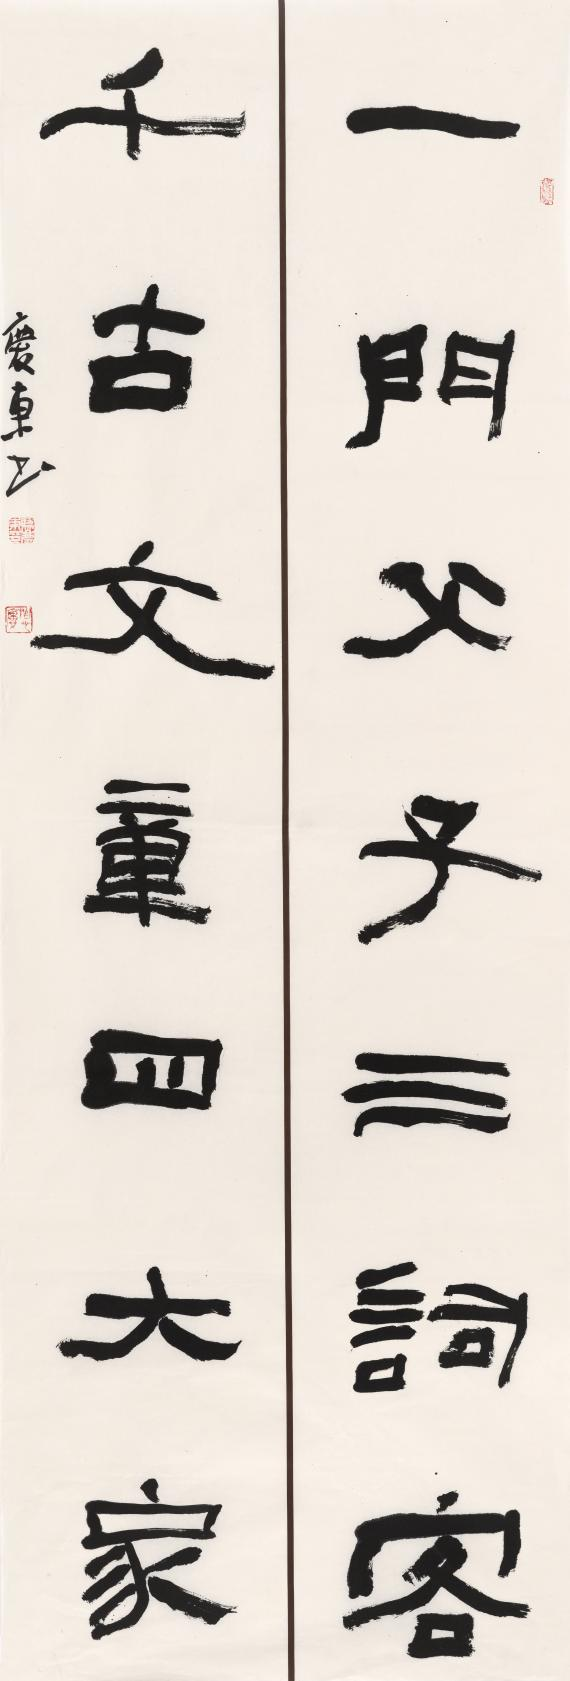 一門父子三詞客
千古文章四大家
慶東书